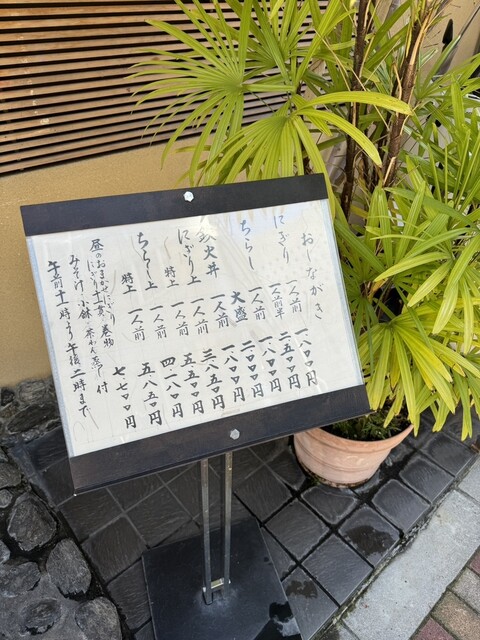 おしながき
にぎり 一人前 一八〇〇円
一人前半 二五〇〇円
ちらし 一人前 一八〇〇円
大盛
鉄火丼 一人前
にぎり上 一人前 三八五〇円
特上 一人前 五五〇〇円
ちらし上 一人前 四一八〇円
特上 一人前 五八五〇円
昼のおまかせにぎり 七七〇〇円
にぎり十一貫、巻物
みそ汁、小鉢、茶わん蒸し 付
午前十一時より午後二時まで